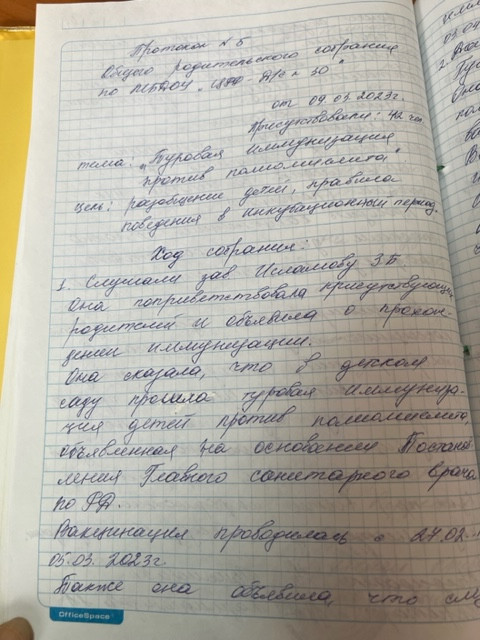 Протокол № 5
Общего родительского собрания
по МБДОУ " Д/с № 30 "
от 09.03.2023г.
Присутствовали: 42 чел
тема: „Туровая иммунизация
против полиомиелита"
цель: разобщение детей, правила
поведения в инкубационный период.
Ход собрания:
1. Слушали зав Исламову З.Б
Она поприветствовала присутствующих
родителей и объявила о прохож-
дении иммунизации.
Она сказала, что в детском
саду прошла туровая иммуниза-
ция детей против полиомиелита,
объявленная на основании Постанов
ления Главного санитарного врача
по РД.
Вакцинация проводилась с 27.02.
05.03. 2023г.
Также она объявила, что
OfficeSpace